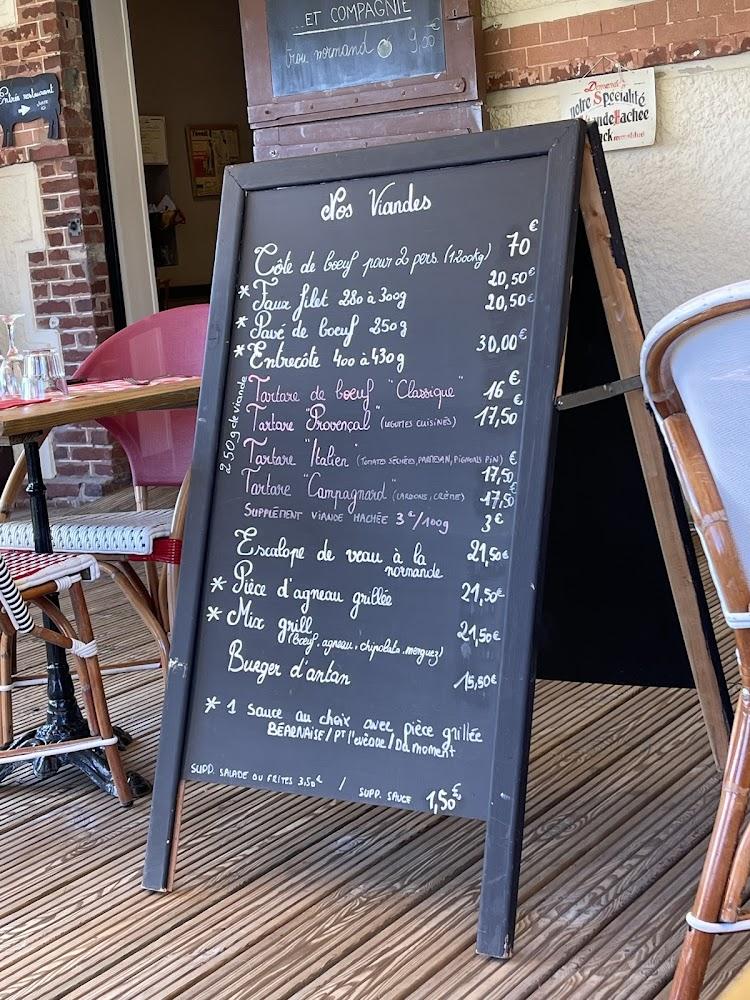 ET COMPAGNIE
trou normand 9,50
Entrée restaurant
notre Spécialité
Viande Hachée
Nos Viandes
Côte de bœuf pour 2 pers. (1200kg) 70€
* Faux filet 280 à 300g 20,50€
* Pavé de bœuf 250g 20,50€
* Entrecôte 400 à 430g 30,00€
250g de viande
Tartare de bœuf "Classique" 16€
Tartare "Provençal" (LÉGUMES CUISINÉS) 17,50€
Tartare "Italien" (TOMATES SÉCHÉES, PARMESAN, PIGNONS PIN) 17,50€
Tartare "Campagnard" (LARDONS, CRÈME) 17,50€
SUPPLÉMENT VIANDE HACHÉE 3€/100g 3€
Escalope de veau à la normande 21,50€
* Pièce d'agneau grillée 21,50€
* Mix grill 21,50€
(Bœuf, agneau, chipolata, merguez)
Burger d'antan 15,50€
* 1 sauce au choix avec pièce grillée
BÉARNAISE / PT l'évêque / Du moment
SUPP. SALADE OU FRITES 3,50€ / SUPP. SAUCE 1,50€